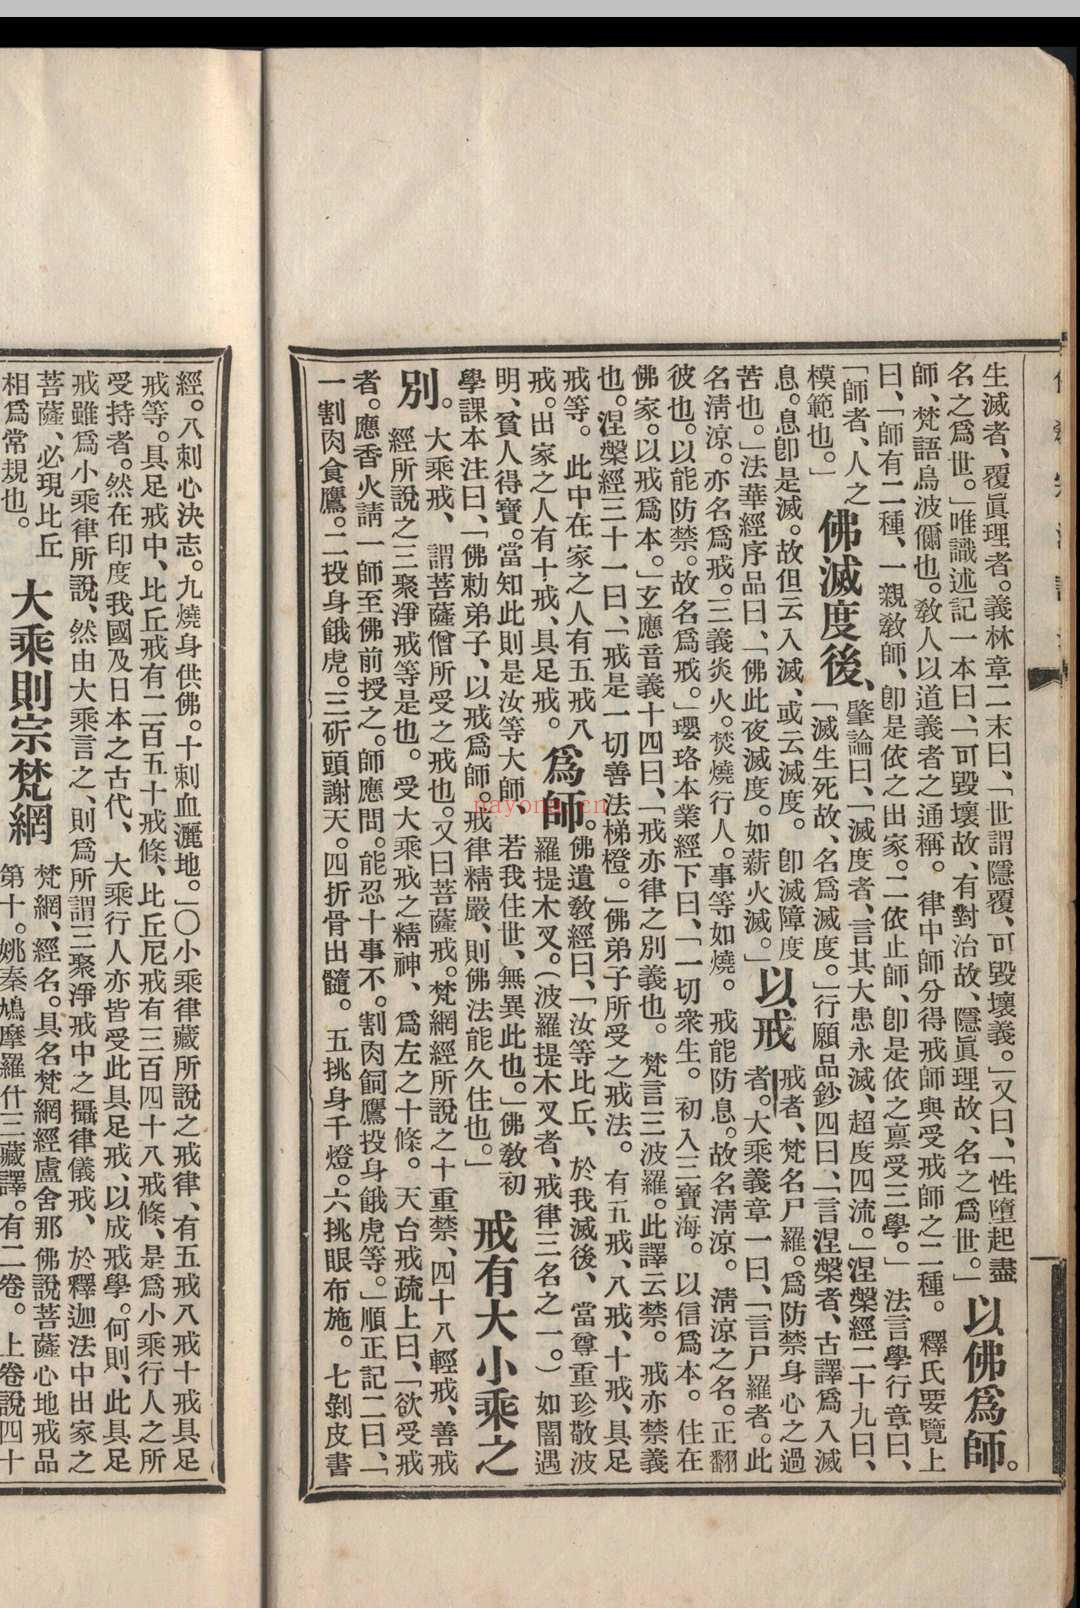 生滅者、覆眞理者。義林章二末曰、「世謂隱覆、可毀壞義。」又曰、「性墮起盡
名之爲世。」唯識述記一本曰、「可毀壞故、有對治故、隱眞理故、名之爲世。」以佛爲師。
師、梵語烏波儞也。敎人以道義者之通稱。律中師分得戒師與受戒師之二種。釋氏要覽上
曰、「師有二種、一親敎師、卽是依之出家。二依止師、卽是依之禀受三學。」法言學行章曰、
「師者、人之
模範也。」佛滅度後、肇論曰、「滅度者、言其大患永滅、超度四流。」涅槃經二十九曰、
「滅生死故、名爲滅度。」行願品鈔四曰、「言涅槃者、古譯爲入滅
息。息卽是滅。故但云入滅、或云滅度。卽滅障度
苦也。」法華經序品曰、「佛此夜滅度。如薪火滅。」以戒戒者、梵名尸羅。爲防禁身心之過
者。大乘義章一曰、「言尸羅者。此
名淸涼。亦名爲戒。三義炎火。焚燒行人。事等如燒。戒能防息。故名淸涼。淸涼之名。正翻
彼也。以能防禁。故名爲戒。」瓔珞本業經下曰、「一切衆生。初入三寶海。以信爲本。住在
佛家。以戒爲本。」玄應音義十四曰、「戒亦律之別義也。梵言三波羅。此譯云禁。戒亦禁義
也。涅槃經三十一曰、「戒是一切善法梯橙。」佛弟子所受之戒法。有五戒、八戒、十戒、具足
戒等。此中在家之人有五戒八
戒。出家之人有十戒、具足戒。爲師。佛遺敎經曰、「汝等比丘、於我滅後、當尊重珍敬波
羅提木叉。(波羅提木叉者、戒律三名之一。)如闇遇
明、貧人得寶。當知此則是汝等大師、若我住世、無異此也。」佛敎初
學課本注曰、「佛勅弟子、以戒爲師。戒律精嚴、則佛法能久住也。」戒有大小乘之
別。大乘戒、謂菩薩僧所受之戒也。又曰菩薩戒。梵網經所說之十重禁、四十八輕戒、善戒
經所說之三聚淨戒等是也。受大乘戒之精神、爲左之十條。天台戒疏上曰、「欲受戒
者。應香火請一師至佛前授之。師應問。能忍十事不。割肉飼鷹投身餓虎等。」順正記二曰、「
一割肉食鷹。二投身餓虎。三斫頭謝天。四折骨出髓。五挑身千燈。六挑眼布施。七剝皮書
經。八刺心決志。九燒身供佛。十刺血灑地。」〇小乘律藏所說之戒律、有五戒八戒十戒具足
戒等。具足戒中、比丘戒有二百五十戒條、比丘尼戒有三百四十八戒條、是爲小乘行人之所
受持者。然在印度我國及日本之古代、大乘行人亦皆受此具足戒、以成戒學。何則、此具足
戒雖爲小乘律所說、然由大乘言之、則爲所謂三聚淨戒中之攝律儀戒、於釋迦法中出家之
菩薩、必現比丘
相爲常規也。大乘則宗梵網梵網、經名。具名梵網經盧舍那佛說菩薩心地戒品
第十。姚秦鳩摩羅什三藏譯。有二卷。上卷說四十
nayong.cn